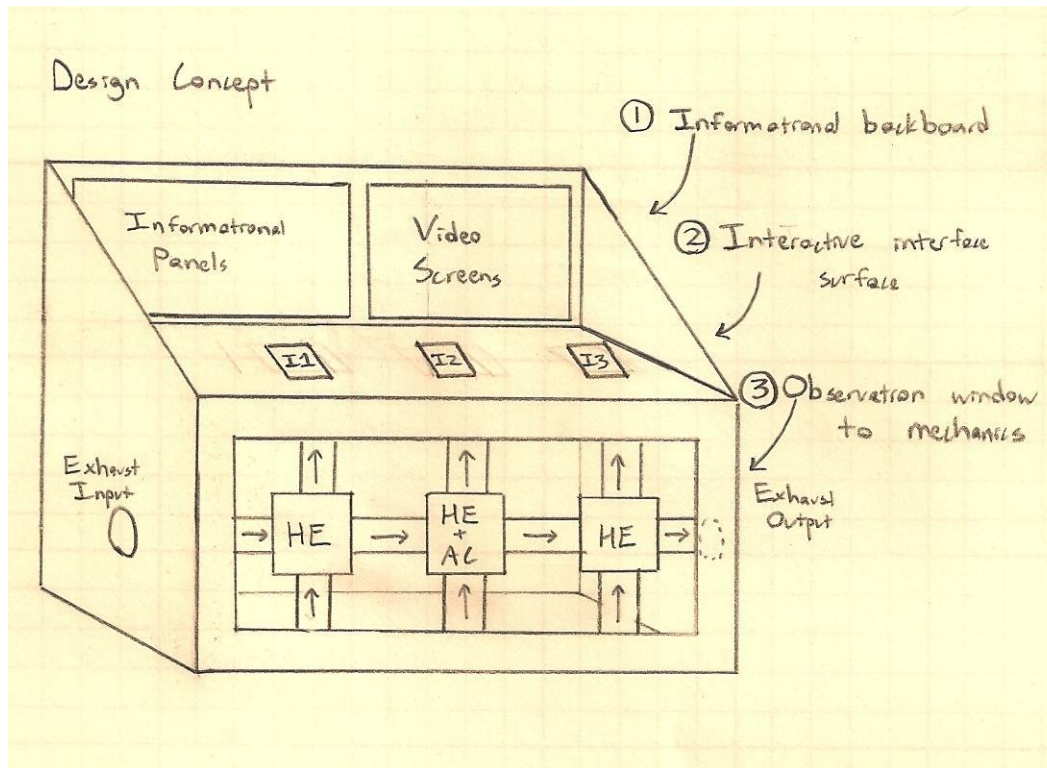 Design Concept
① Informational backboard
② Interactive interface
surface
③ Observation window
to mechanics
Informational
Panels
Video
Screens
I1
I2
I3
Exhaust
Input
Exhaust
Output
HE
HE
+
AC
HE